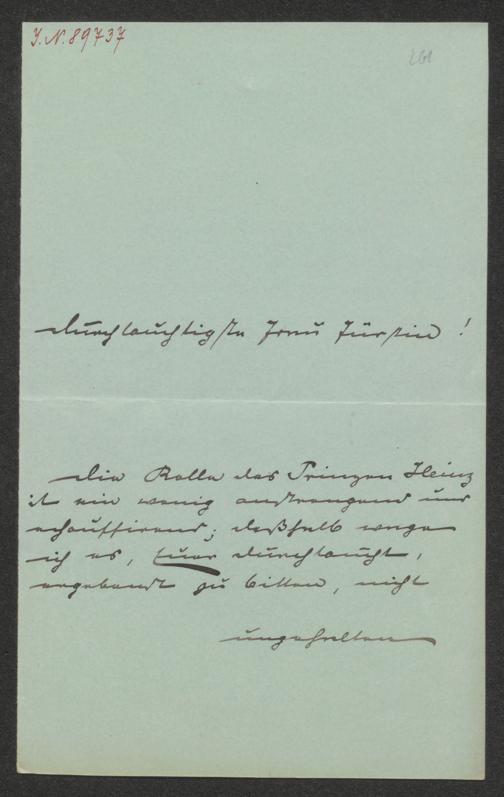 J.N. 89737
261
Durchlauchtigste Frau Fürstin!
Die Rolle des Prinzen Heinz
ist ein wenig anstrengend und
echauffirend; deßhalb wage
ich es, Euer Durchlaucht,
ergebenst zu bitten, nicht
ungehalten